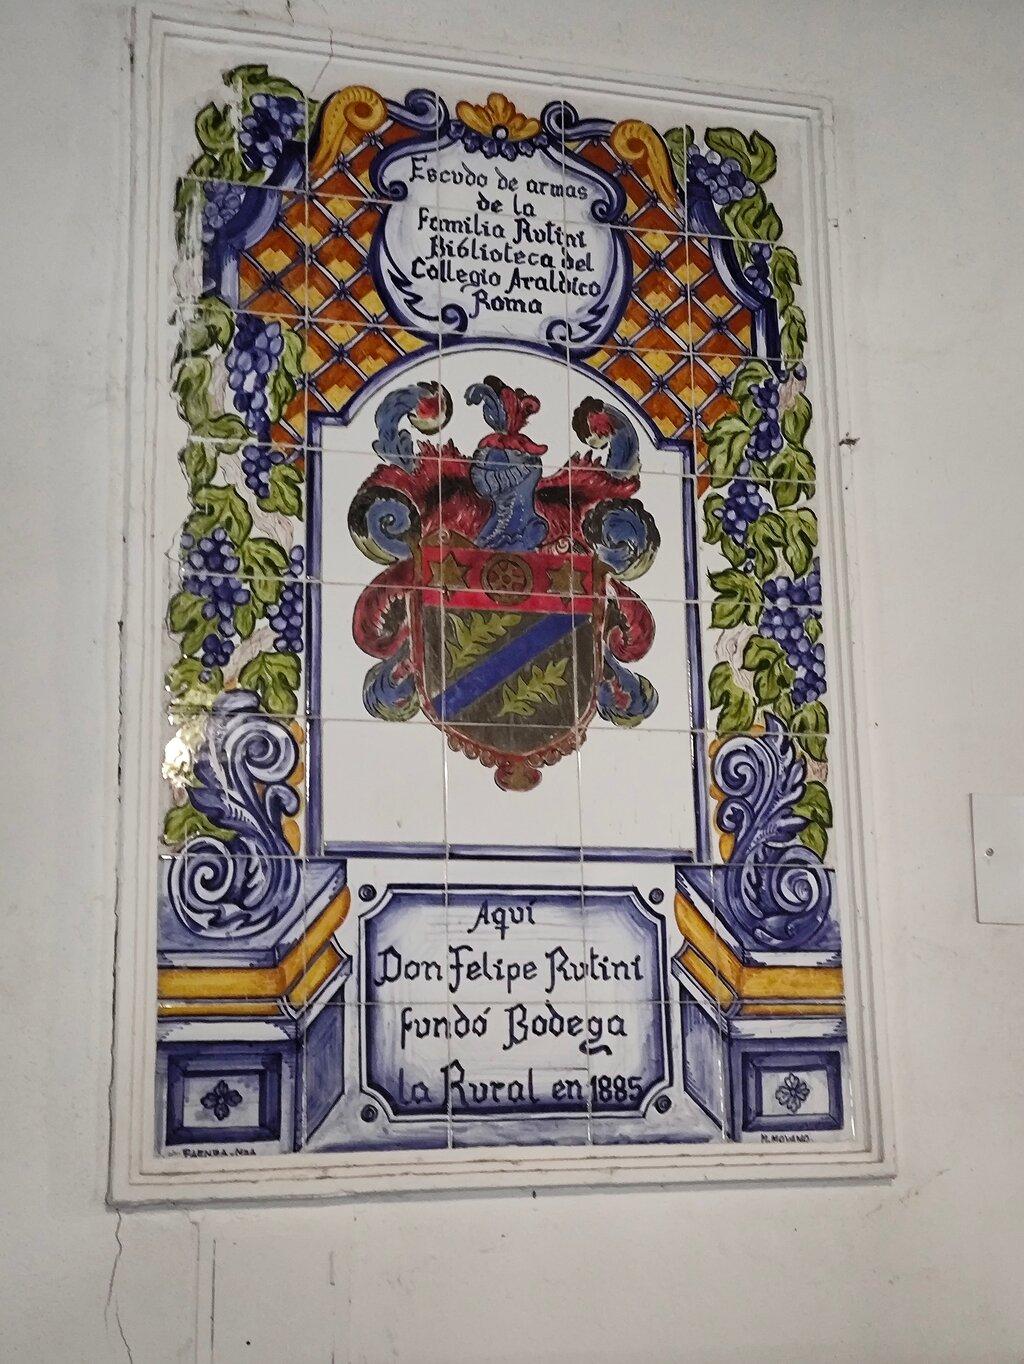 Escudo de armas
de la
Familia Rutini
Biblioteca del
Collegio Araldico
Roma
Aquí
Don Felipe Rutini
fundó Bodega
la Rural en 1885
M. MOYANO